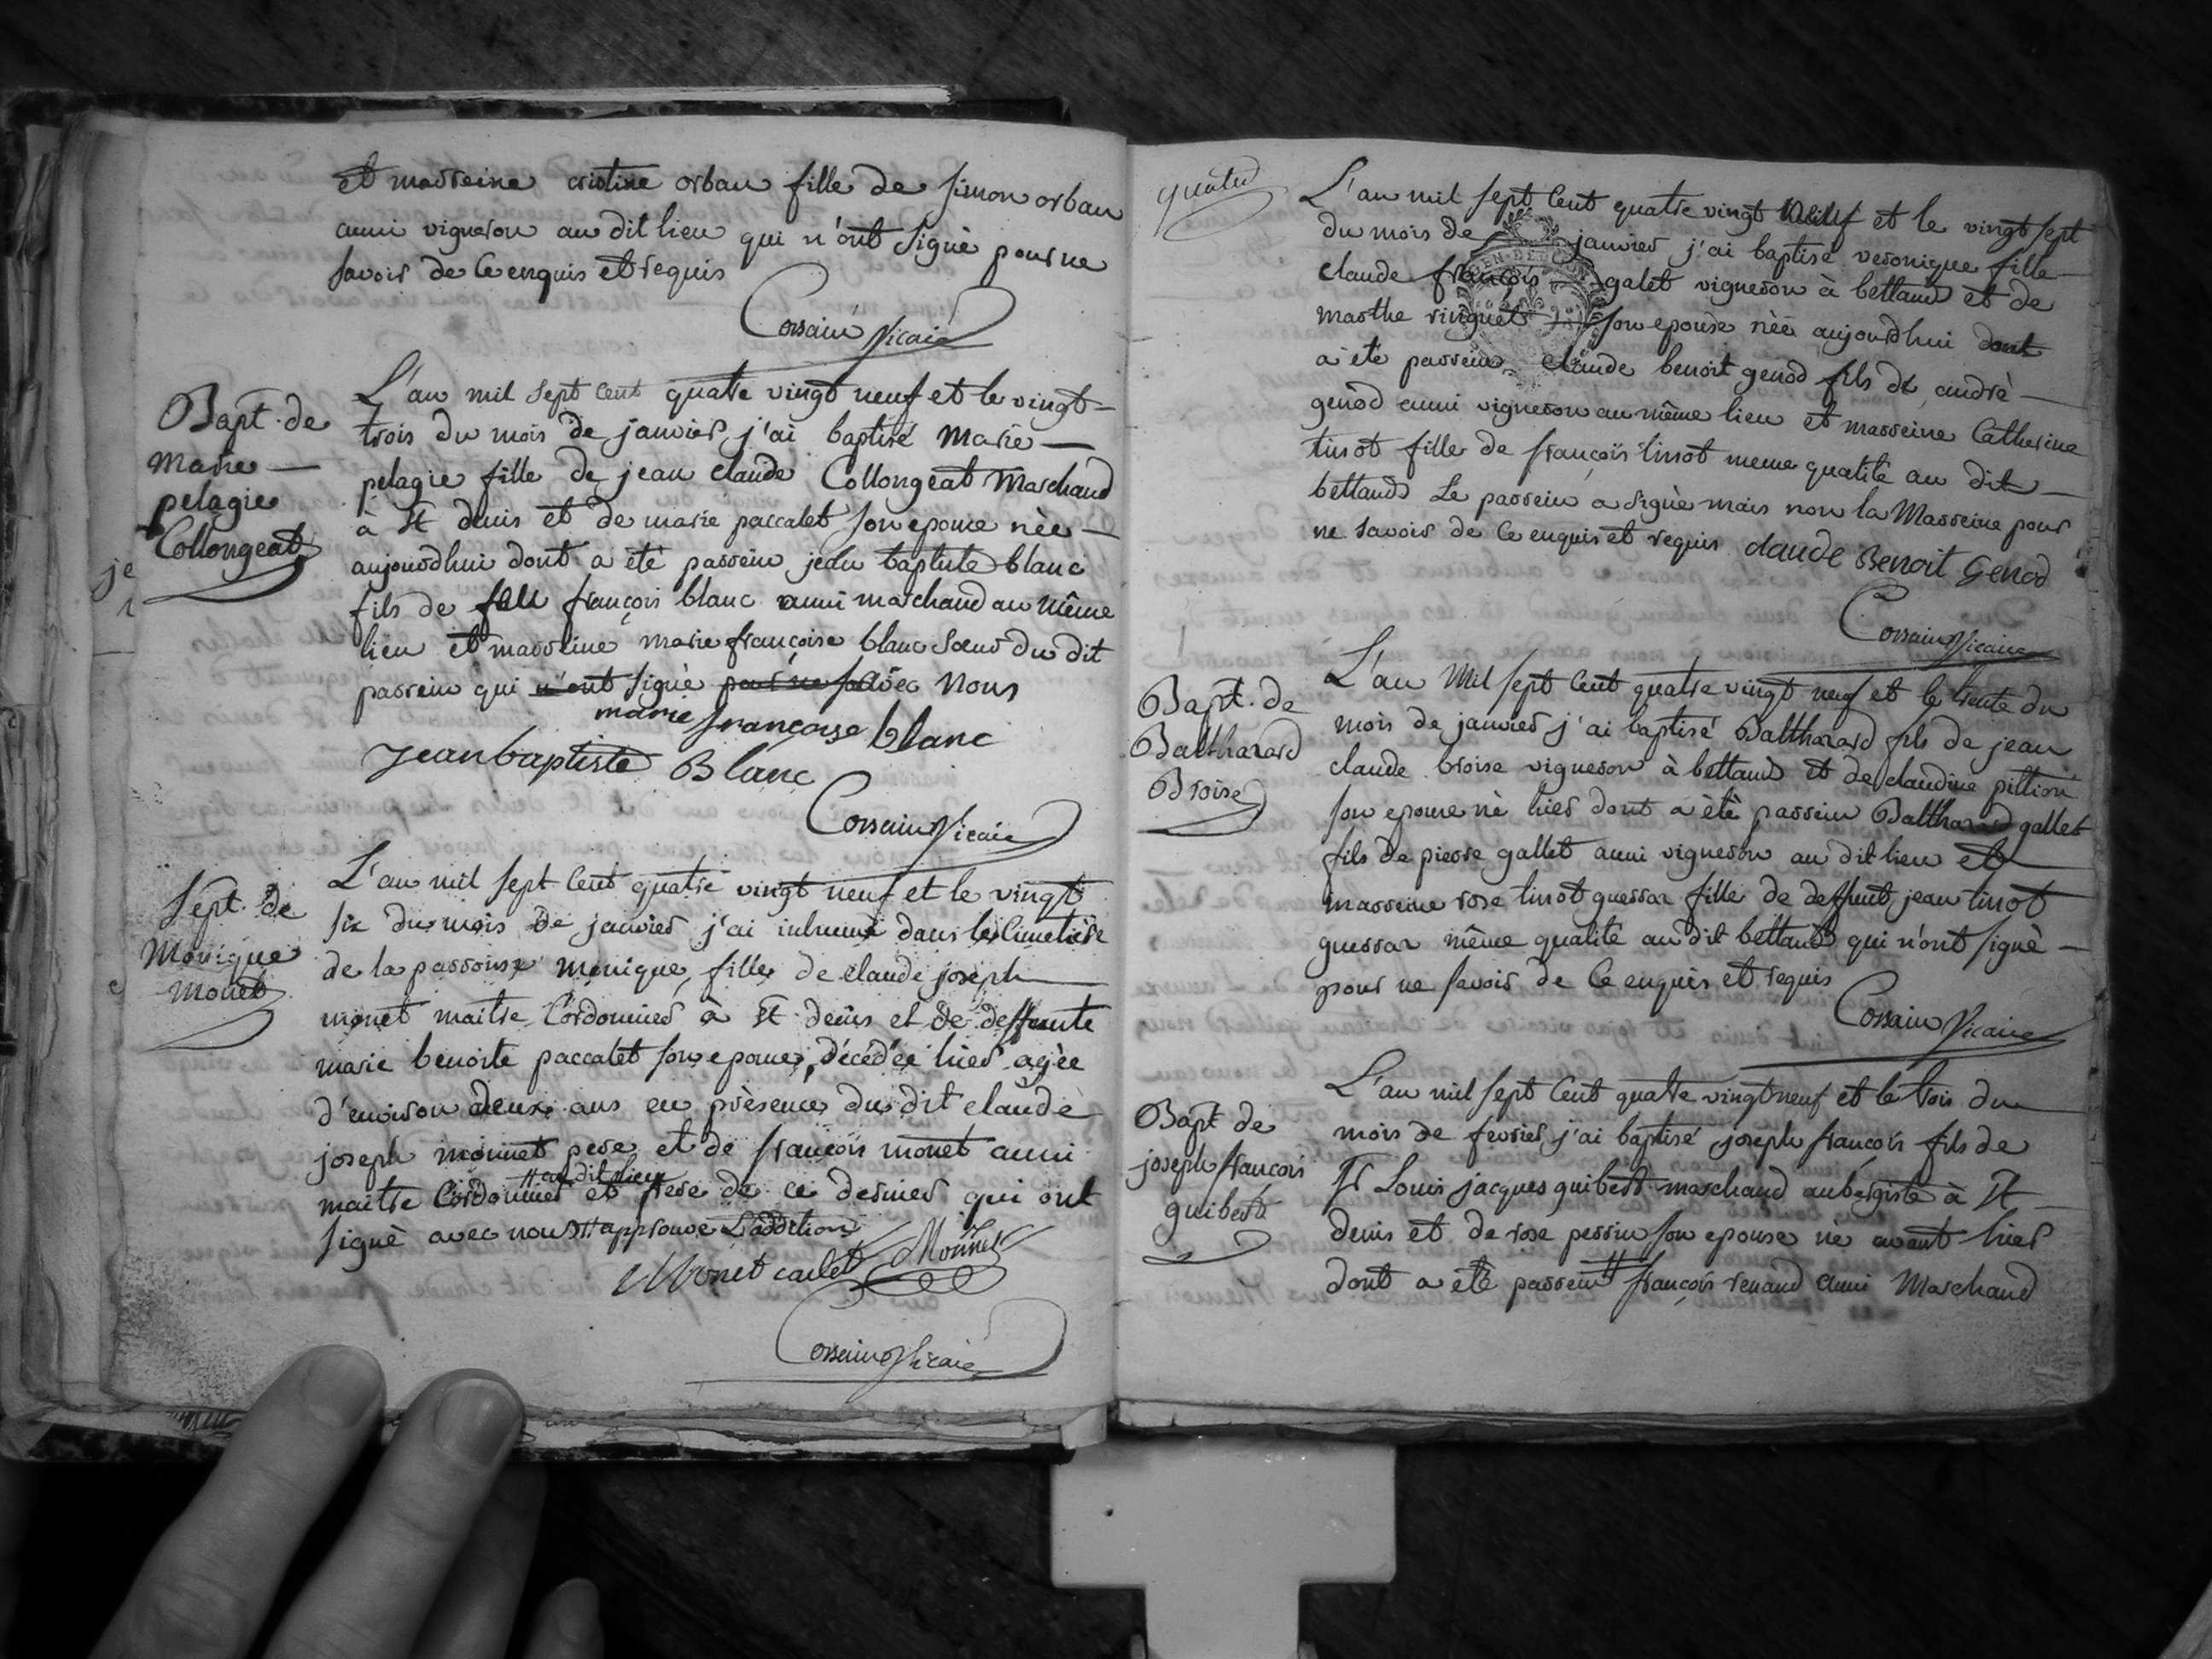 et marreine cristine orban fille de simon orban
aussi vigneron au dit lieu qui n'ont signè pour ne
savoir de ce enquis et requis
Corsain Vicaire
Bapt. de
Marie
pelagie
Collongeat
L'an mil sept cent quatre vingt neuf et le vingt
trois du mois de janvier j'ai baptisé Marie
pelagie fille de jean claude Collongeat Marchand
à St denis et de marie paccalet son epouse nèe
aujourdhui dont a èté parrein jean baptiste blanc
fils de feu françois blanc aussi marchand au même
lieu et marreine marie françoise blanc soeur du dit
parrein qui n'ont signè pour ne sa avec nous
marie françoise blanc
Jean baptiste Blanc
Corsain Vicaire
Sept. de
Monique
Monet
L'an mil sept cent quatre vingt neuf et le vingt
six du mois de janvier j'ai inhumé dans le cimetière
de la parroisse monique, fille de claude joseph
monet maitre Cordonnier à St denis et de deffunte
marie benoite paccalet son epouse, décédée hier agèe
d'environ deux ans en prèsence du dit claude
joseph monnet pere et de françois monet aussi
# au dit lieu
maitre Cordonnier et frere de ce dernier qui ont
signè avec nous # approuvé L'addition
Monet cadet Monnet
Corsain Vicaire
quatre
L'an mil sept cent quatre vingt neuf et le vingt sept
du mois de janvier j'ai baptisé veronique fille
claude françois galet vigneron à bettand et de
marthe vinguet son epouse nèe aujourdhui dont
a èté parrein claude benoit genod fils de andrè
genod aussi vigneron au même lieu et marreine Catherine
tissot fille de françois tissot meme qualité au dit
bettand Le parrein a signè mais non la Marreine pour
ne savoir de ce enquis et requis claude Benoit Genod
Corsain Vicaire
Bapt. de
Balthazard
Broise
L'an Mil sept cent quatre vingt neuf et le trente du
mois de janvier j'ai baptisé Balthazard fils de jean
claude broise vigneron à bettand et de claudine pittion
son epouse nè hier dont a èté parrein Balthazard gallet
fils de pierre gallet aussi vigneron au dit lieu et
marreine rose tissot guessar fille de deffunt jean tissot
guessar même qualité au dit bettand qui n'ont signè
pour ne savoir de ce enquis et requis
Corsain Vicaire
Bapt de
joseph françois
guibert
L'an mil sept cent quatre vingt neuf et le trois du
mois de fevrier j'ai baptisé joseph françois fils de
Sr Louis jacques guibert marchand aubergiste à St
denis et de rose perrin son epouse nè avant hier
dont a èté parrein # françois renaud aussi Marchand